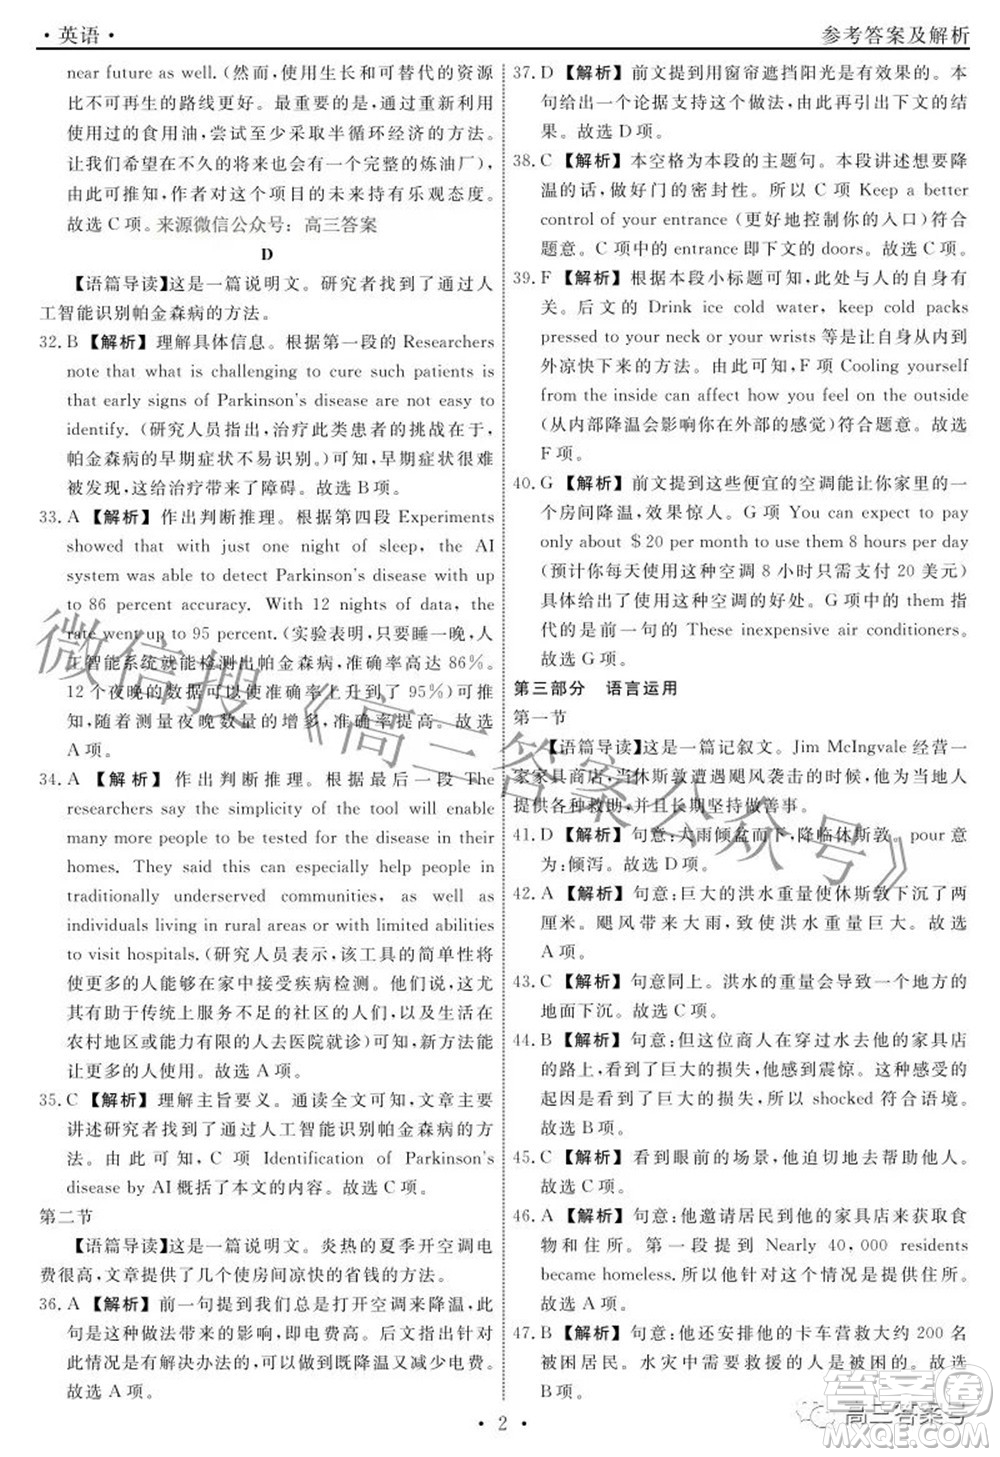 · 英语 ·
参考答案及解析
near future as well.(然而,使用生长和可替代的资源
比不可再生的路线更好。最重要的是,重新利用
使用过的食用油,尝试至少采取半循环经济的方法。
让我们希望在不久的将来会有一批新的炼油厂)。
由此可推知,作者对这个项目的未来持乐观态度。
故选 C 项。来源微信公众号:高三答案
D
【语篇导读】这是一篇说明文。研究者找到了通过人
工智能识别帕金森病的方法。
32. B 【解析】理解具体信息。根据第一段的 Researchers
note that what is challenging to cure such patients is
that early signs of Parkinson's disease are not easy to
identify.(研究人员指出,治疗此类患者的挑战在于,
帕金森病的早期症状不易识别。)可知,早期症状很难
被发现,这给治疗带来了障碍。故选 B 项。
33. A 【解析】作出判断推理。根据第四段 Experiments
showed that with just one night of sleep, the AI
system was able to detect Parkinson's disease with up
to 86 percent accuracy. With 12 nights of data, the
rate went up to 95 percent.(实验表明,只要睡一晚,人
工智能系统就能检测出帕金森病,准确率高达 86%。
12 个夜晚的数据可以使准确率提高到了 95%)可
知,随着测量夜晚数量的增多,准确率提高。故选
A 项。
34. A 【解析】作出判断推理。根据最后一段 The
researchers say the simplicity of the tool will enable
many more people to be tested for the disease in their
homes. They said this can especially help people in
traditionally underserved communities as well as
individuals living in rural areas or with limited abilities
to visit hospitals.(研究人员表示,该工具的简单性将
使更多的人能够在家中接受疾病检测。他们说,这尤
其有助于传统上服务不足的社区的人,以及生活在
农村地区或能力有限的人去医院就诊)可知,新方法能
让更多的人使用。故选 A 项。
35. C 【解析】理解主旨要义。通读全文可知,文章主要
讲述研究者找到了通过人工智能识别帕金森病的方
法。由此可知,C 项 Identification of Parkinson's
disease by AI 概括了本文的内容。故选 C 项。
第二节
【语篇导读】这是一篇说明文。炎热的夏季开空调电
费很高,文章提供了几个使房间凉快的省钱的方法。
36. A 【解析】前一句提到我们总是打开空调来降温,此
句是这种做法带来的影响,即电费高。后文指出针对
此情况是有解决办法的,可以做到既降温又减少电费。
故选 A 项。
37. D 【解析】前文提到用窗帘遮挡阳光是有效果的。本
句给出一个论据支持这个做法,由此再引出下文的结
果。故选 D 项。
38. C 【解析】本空格为本段的主题句。本段讲述想要降
温的话,做好门的密封性。所以 C 项 Keep a better
control of your entrance(更好地控制你的入口)符合
题意。C 项中的 entrance 即下文的 doors。故选 C 项。
39. F 【解析】根据本段小标题可知,此处与人的自身有
关。后文的 Drink ice cold water, keep cold packs
pressed to your neck or your wrists 等是让自身从内到
外凉快下来的方法。由此可知,F 项 Cooling yourself
from the inside can affect how you feel on the outside
(从内部降温会影响你在外部的感觉)符合题意。故选
F 项。
40. G 【解析】前文提到这些便宜的空调能让你家里的
一个房间降温,效果惊人。G 项 You can expect to pay
only about $20 per month to use them 8 hours per day
(预计你每天使用这种空调 8 小时只需支付 20 美元)
具体给出了使用这种空调的好处。G 项中的 them 指
代的是前一句的 These inexpensive air conditioners.
故选 G 项。
第三部分 语言运用
第一节
【语篇导读】这是一篇记叙文。Jim McIngvale 经营一
家家具商店,当休斯敦遭遇飓风袭击的时候,他为人们
提供各种救助,并且长期坚持做善事。
41. D 【解析】句意:大雨倾盆而下,降临休斯敦。pour 意
为:倾泻。故选 D 项。
42. A 【解析】句意:巨大的洪水重量使休斯敦下沉了两
厘米。飓风带来大雨,致使洪水重量巨大。故选
A 项。
43. C 【解析】句意同上。洪水的重量会导致一个地方的
地面下沉。故选 C 项。
44. B 【解析】句意:但这位商人在穿过水去他的家具店
的路上,看到了巨大的损失,他感到震惊。他感受的
起因是看到了巨大的损失,所以 shocked 符合语境。
故选 B 项。
45. C 【解析】看到眼前的场景,他迫切地去帮助人们。
故选 C 项。
46. A 【解析】句意:他邀请居民到他的家具店来获取食
物和住所。第一段提到 Nearly 40, 000 residents
became homeless.所以他针对这个情况是提供住所。
故选 A 项。
47. B 【解析】句意:他还安排他的卡车营救大约 200 名
被困居民。水灾中需要救援的人是被困的人。故选
B 项。
· 2 ·
微信搜《高三答案公众号》
高三答案号
答案圈
MXQE.COM